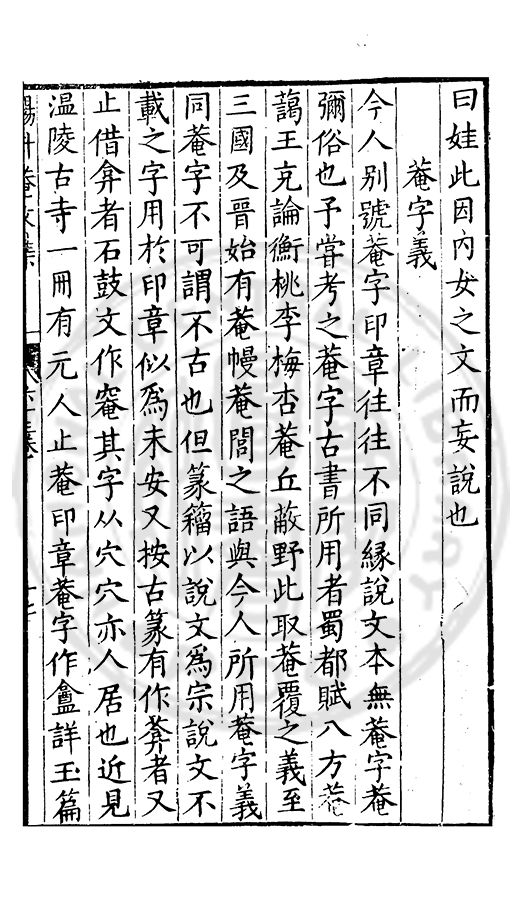 曰娃此因內女之文而妄說也
菴字義
今人别號菴字印章徃徃不同緣說文本無菴字菴
彌俗也予甞考之菴字古書所用者蜀都賦八方菴
藹王充論衡桃李梅杏菴丘蔽野此取菴覆之義至
三國及晉始有菴幔菴閭之語與今人所用菴字義
同菴字不可謂不古也但篆籀以說文爲宗說文不
載之字用於印章似爲未安又按古篆有作葊者又
止借弇者石鼓文作窀其字从穴穴亦人居也近見
温陵古寺一冊有元人止菴印章菴字作盦詳玉篇